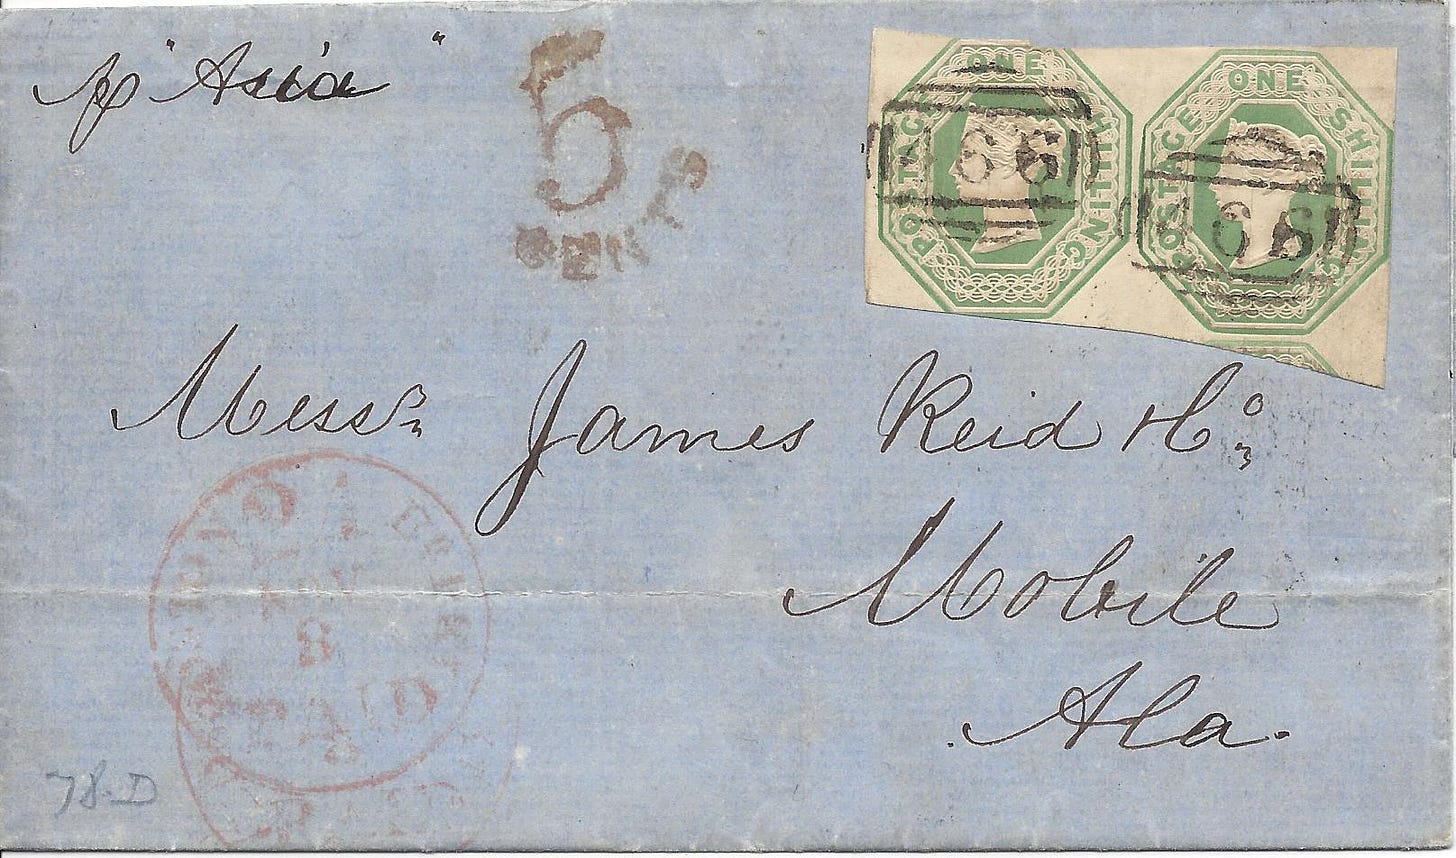 p "Asia"
5
CENTS
ONE SHILLING POSTAGE
ONE SHILLING POSTAGE
466
466
Messrs James Reid & Co
Mobile
Ala.
8
PAID
78-D